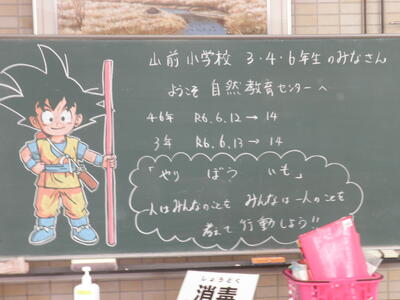 山前小学校 3・4・6年生のみなさん
ようこそ 自然教育センターへ
4・6年 R6.6.12 → 14
3年 R6.6.13 → 14
「やり ぼう いも」
一人はみんなのことを みんなは一人のことを
考えて行動しよう!!
しょうどく
消毒